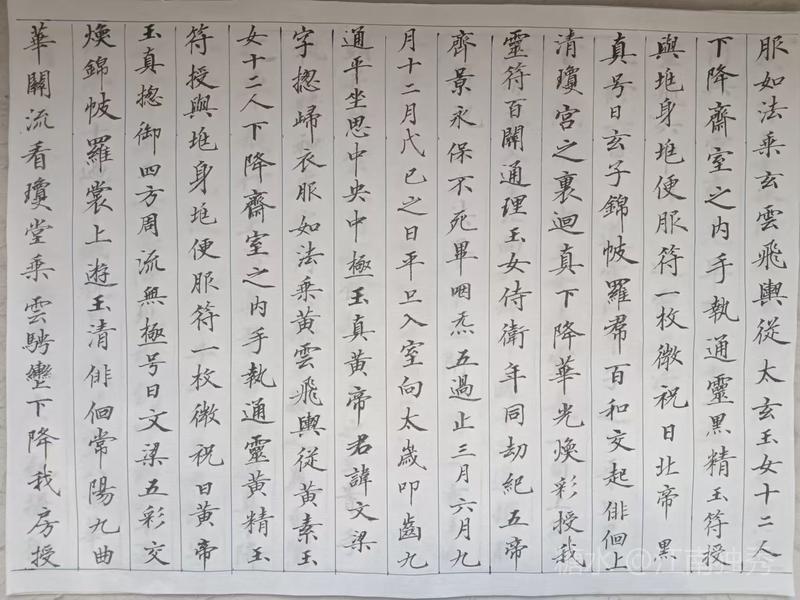 服如法乘玄雲飛輿從太玄玉女十二人
下降齋室之内手執通靈黑精玉符授
與兆身兆便服符一枚微祝曰北帝黑
真号曰玄子錦帔羅帬百和交起俳佪上
清瓊宮之裏迴真下降華光煥彩授我
靈符百關通理玉女侍衛年同劫紀五帝
齊景永保不死畢咽炁五過止三月六月九
月十二月戊己之日平旦入室向太歲叩齒九
通平坐思中央中極玉真黄帝君諱文梁
字揔歸衣服如法乘黄雲飛輿從黄素玉
女十二人下降齋室之内手執通靈黄精玉
符授與兆身兆便服符一枚微祝曰黄帝
玉真揔御四方周流無極号曰文梁五彩交
煥錦帔羅裳上遊玉清俳佪常陽九曲
華關流看瓊堂乘雲騁轡下降我房授